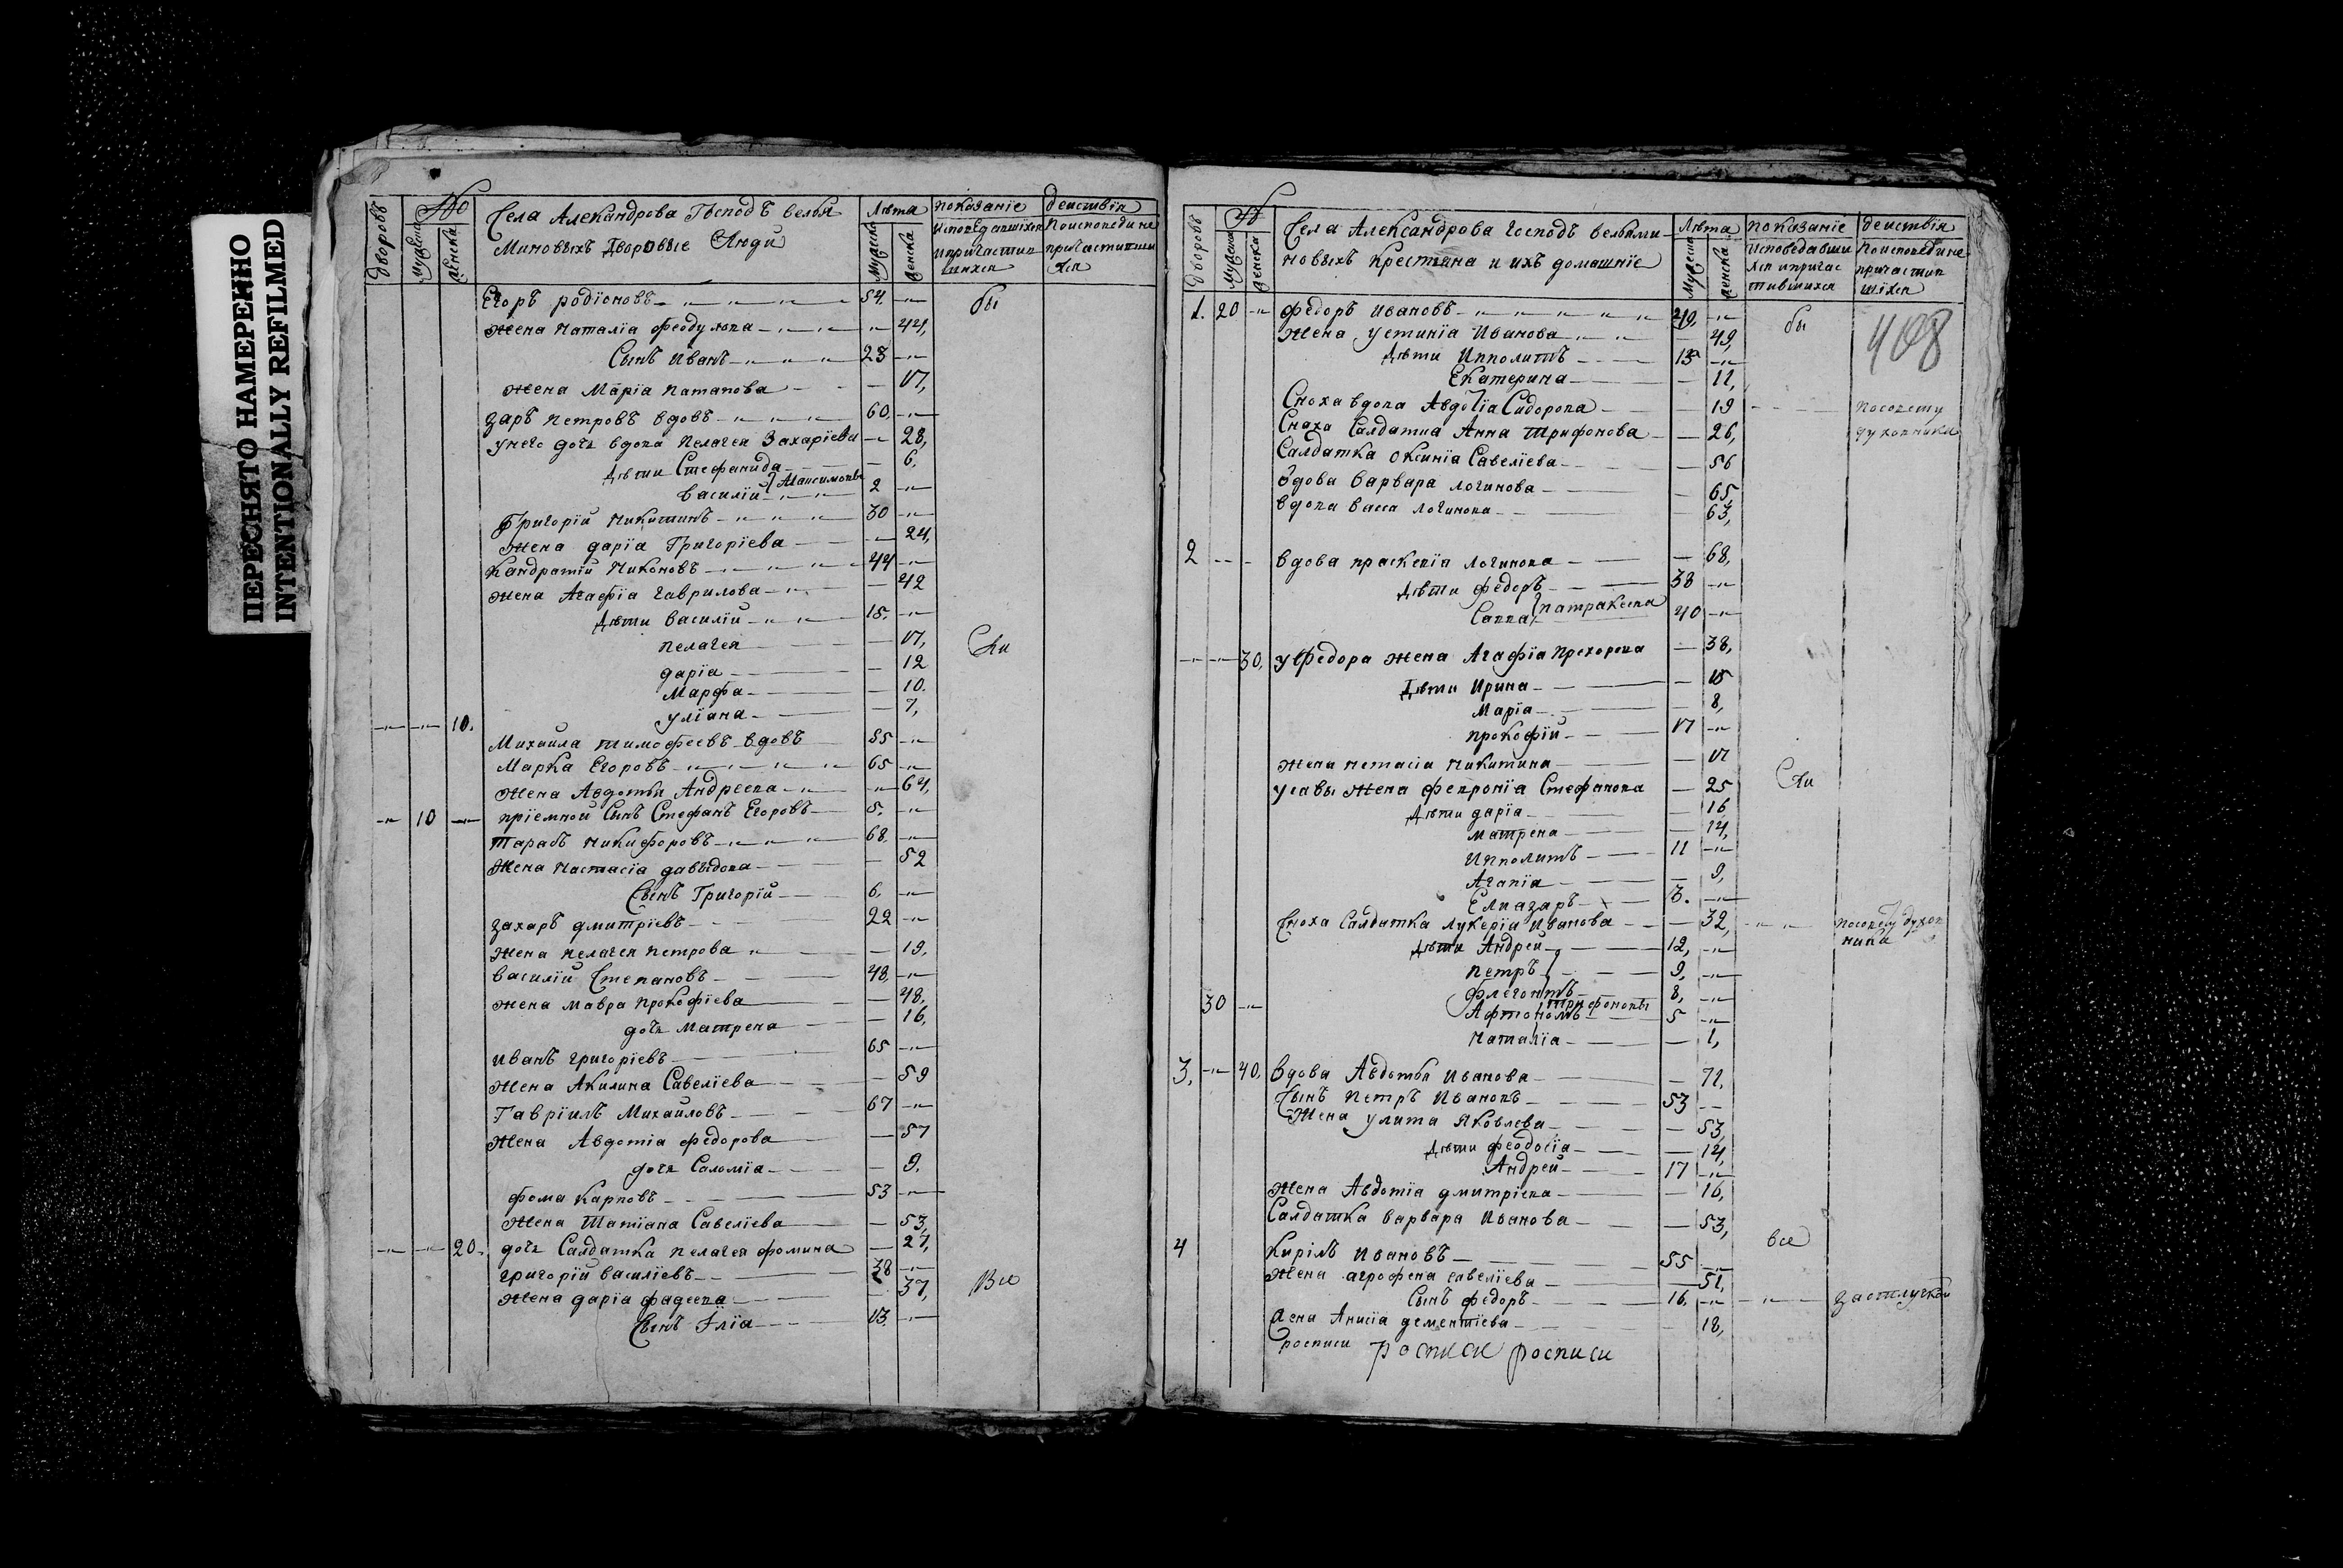 ПЕРЕСНЯТО НАМЕРЕННО
INTENTIONALLY REFILMED
дворовъ
мужеска
женска
Села Александрова Господъ велья
Миновыхъ Дворовые Люди
Лѣта
мужеска
женска
показаніе
действія
Егоръ родіоновъ 54.
Жена Наталіа Феодулова 44,
Сынъ Иванъ 23
Жена Маріа Патапова 17,
Заръ Петровъ вдовъ 60.
Унего дочь вдова Пелагея Захаріева 28,
Дѣти Стефанида 6,
василій Максимовы 2
Григорій Никитинъ 30
Жена даріа Григоріева 24,
Кандратій Никоновъ 44
Жена Агафіа гаврилова 42
Дѣти василій 15.
пелагея 17,
даріа 12
Марфа 10.
10. уліана 7,
Михаила тимофеевъ вдовъ 85
Марка Егоровъ 65
Жена Авдотья Андреева 64,
10 пріемной Сынъ Стефанъ Егоровъ 5.
Тарабъ Никифоровъ 68.
Жена Настасіа давыдова 52
Сынъ Григорій 6.
Захаръ дмитріевъ 22
Жена пелагея петрова 19.
василій Степановъ 48,
жена мавра Прокофіева 48,
дочь Матрена 16,
Иванъ григоріевъ 65
Жена Акилина Савеліева 59
Гавріилъ Михаиловъ 67
Жена Авдотіа федорова 57
дочь Саломіа 9.
фома Карповъ 53
Жена Татіана Савеліева 53,
20. дочь Салдатка пелагея фомина 27,
григорій василіевъ 38
Жена даріа фадеева 37,
Сынъ Іліа 13.
бы
Ли
Все
дворовъ
мужеска
женска
Села Александрова господъ вельями-
новыхъ крестьяна и ихъ домашніе
Лѣта
мужеска
женска
показаніе
действія
408
1. 20 федоръ ивановъ 49,
Жена устиніа Иванова 49,
Дѣти Ипполитъ 15
Екатерина 11,
Сноха вдова Авдотіа Сидорова 19 посовету
Сноха Салдатка Анна Трифонова 26, духовника
Салдатка Оксиніа Савеліева 56
вдова варвара логинова 65,
вдова васса логинова 63,
2 вдова праскевіа логинова 68,
Дѣти федоръ 38
Савва патракеева 40
30, уФедора Жена Агафіа Прохорова 38,
Дѣти Ирина 15
Маріа 8,
прокофій 17
Жена нетасіа никитина 17
усавы Жена февроніа Стефанова 25
Дѣти даріа 16
матрена 14,
Ипполитъ 11
Агапіа 9,
Елиазаръ 3.
Сноха Салдатка Лукеріа Иванова 32, посовету духов
ника
Дѣти Андрей 12,
петръ 9,
флегонтъ 8,
трифоновы
30 Афтономъ 5
Наталіа 1,
3, 40, вдова Авдотья иванова 71,
Сынъ Петръ ивановъ 53
Жена улита Яковлева 53,
Дѣти феодосіа 14,
Андрей 17
Жена Авдотіа дмитріева 16,
Салдатка варвара Иванова 53,
4 Кирілъ ивановъ 55
Жена агрофена савеліева 51,
Сынъ федоръ 16. заотлучкой
Жена Анисіа дементіева 18,
росписи росписи росписи
бы
Ли
все